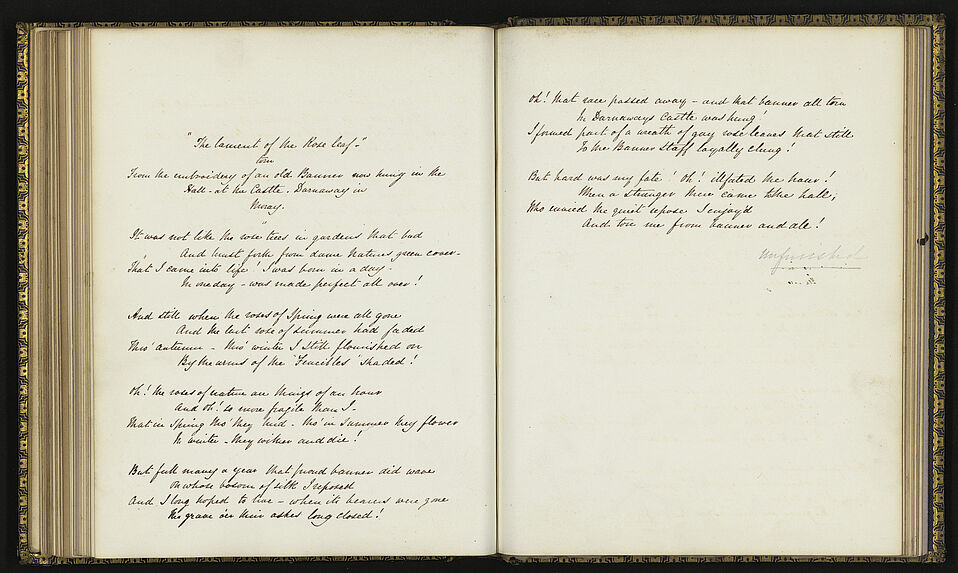 "The lament of the Rose leaf-"
torn
From the embroidery of an old Banner now hung in the
Hall - at the Castle. Darnaway in
Moray.
It was not like the rose trees in gardens that bud
And burst forth from dame Natures green cover-
That I came into life! I was born in a day-
In one day - was made perfect all over!
And still when the roses of Spring were all gone
And the last rose of summer had faded
Thro' Autumn - thro' winter I still flourished on
By the arms of the 'Fencibles' shaded!
Oh! the roses of nature are things of an hour
And oh! so more fragile than I-
That in Spring tho' they bud - tho' in summer they flower
In winter - they wither and die!
But full many a year that proud banner did wave
On whose bosom of silk I reposed
And I long hoped to live - when its bearers were gone
The grave o'er their ashes long closed!
Oh! that race passed away - and that banner all torn
In Darnaways Castle was hung!
I formed part of a wreath of gay rose leaves that still
To the Banner Staff loyally clung!
But hard was my fate! oh! illfated the hour!
When a stranger there came to the hall,
Who envied the quiet repose I enjoy'd
And tore me from banner and all!
unfinished